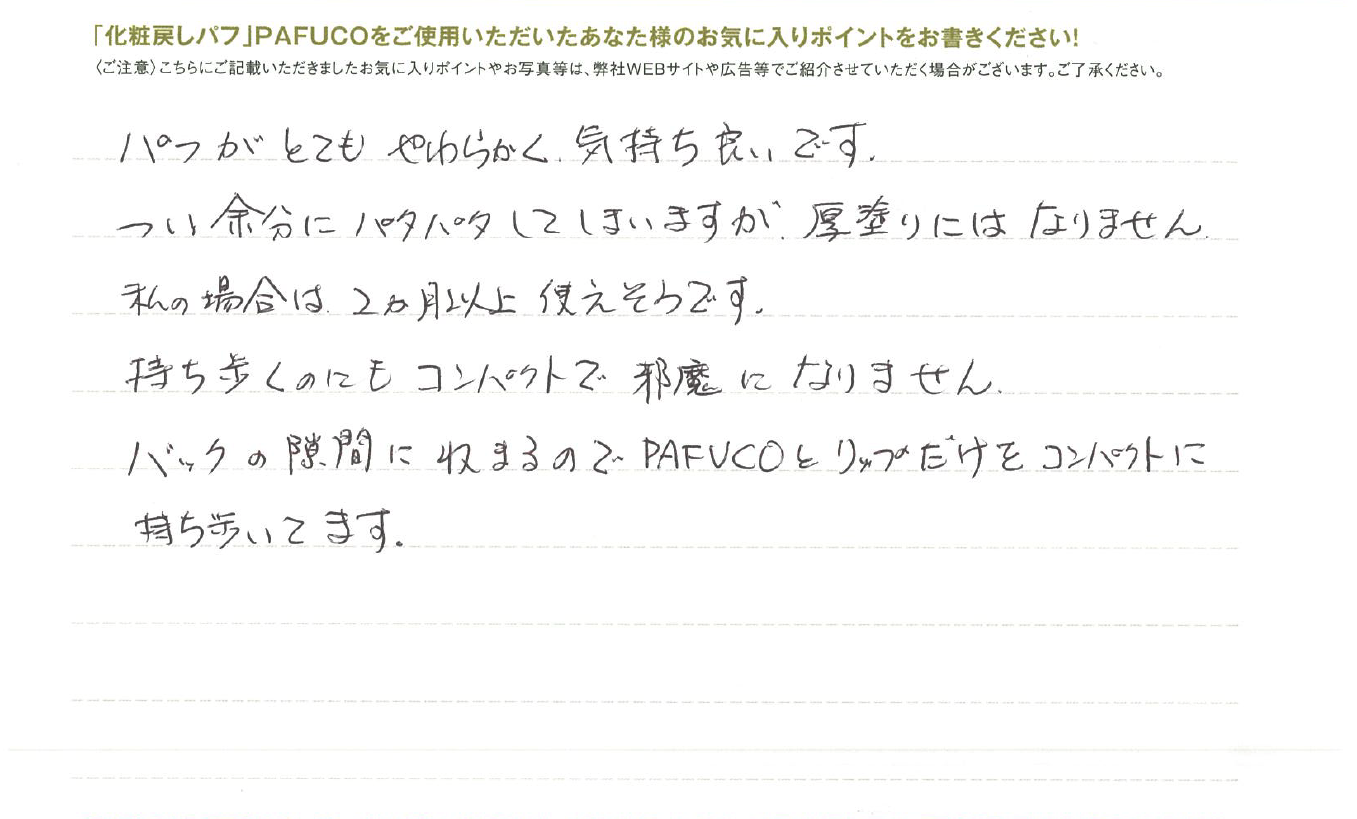 「化粧戻しパフ」PAFUCOをご使用いただいたあなた様のお気に入りポイントをお書きください!
〈ご注意〉こちらにご記載いただきましたお気に入りポイントやお写真等は、弊社WEBサイトや広告等でご紹介させていただく場合がございます。ご了承ください。
パフがとてもやわらかく、気持ち良いです。
つい余分にパタパタしてしまいますが、厚塗りにはなりません。
私の場合は、2ヵ月以上使えそうです。
持ち歩くのにもコンパクトで邪魔になりません。
バックの隙間に収まるのでPAFUCOとリップだけをコンパクトに
持ち歩いてます。